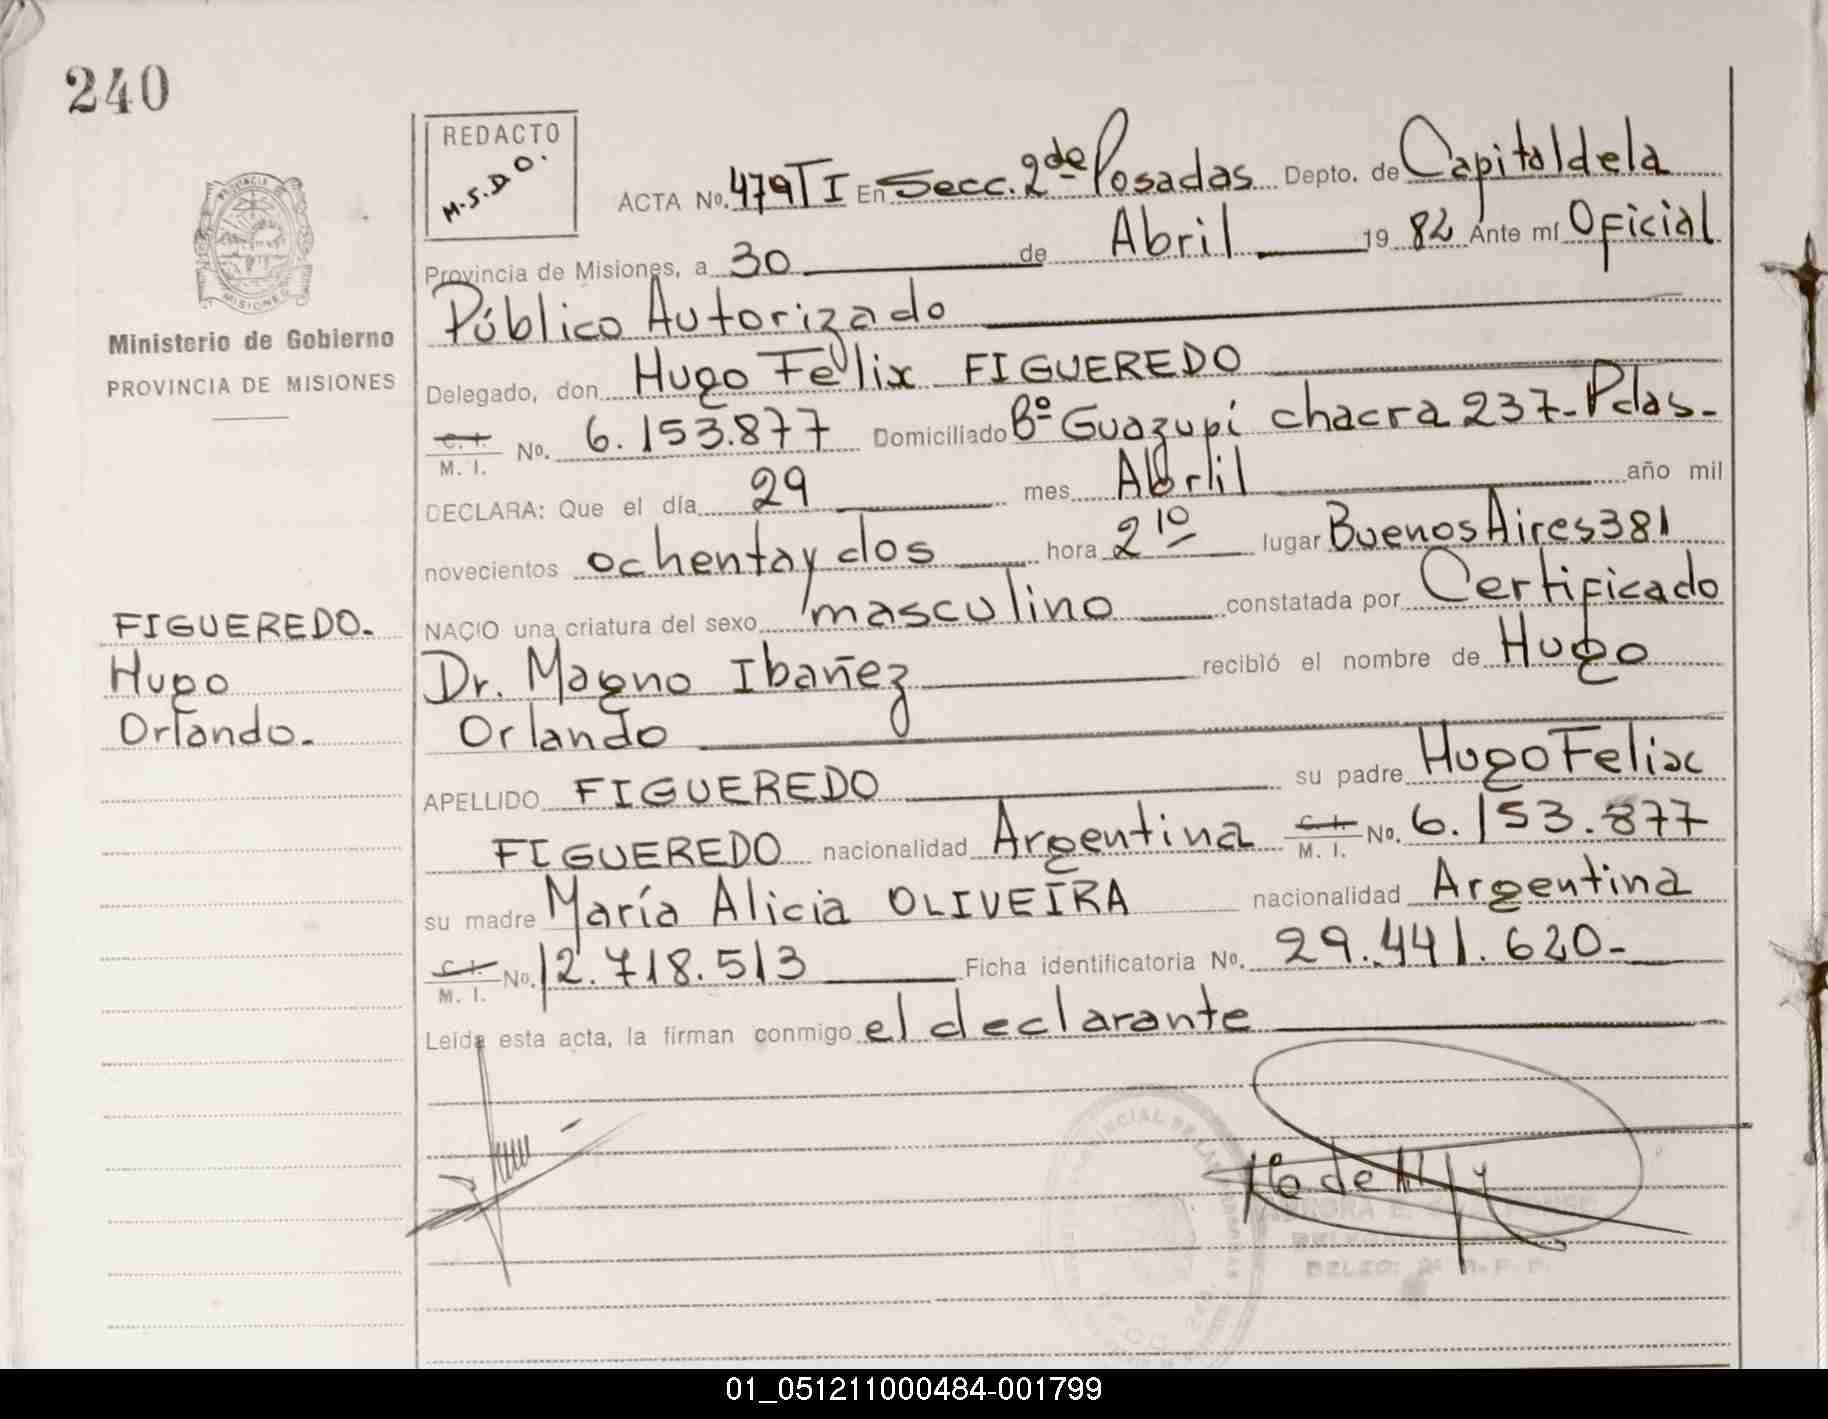 240
REDACTO
M.S.D.O.
ACTA No. 479 T I En Secc. 2da de Posadas Depto. de Capital de la
Provincia de Misiones, a 30 de Abril 19 82 Ante mí Oficial
Público Autorizado
Delegado, don Hugo Felix FIGUEREDO
C. I. M. I. No. 6.153.877 Domiciliado Bº Guazupí chacra 237-Pdas-
DECLARA: Que el día 29 mes Abril año mil
novecientos ochenta y dos hora 2 10 lugar Buenos Aires 381
NACIO una criatura del sexo masculino constatada por Certificado
Dr. Magno Ibañez recibió el nombre de Hugo
Orlando
APELLIDO FIGUEREDO su padre Hugo Felix
FIGUEREDO nacionalidad Argentina C. I. M. I. No. 6.153.877
su madre María Alicia OLIVEIRA nacionalidad Argentina
C. I. M. I. No. 12.718.513 Ficha identificatoria No. 29.441.620-
Leída esta acta, la firman conmigo el declarante
PROVINCIA DE
MISIONES
Ministerio de Gobierno
PROVINCIA DE MISIONES
FIGUEREDO.
Hugo
Orlando.
01_051211000484-001799